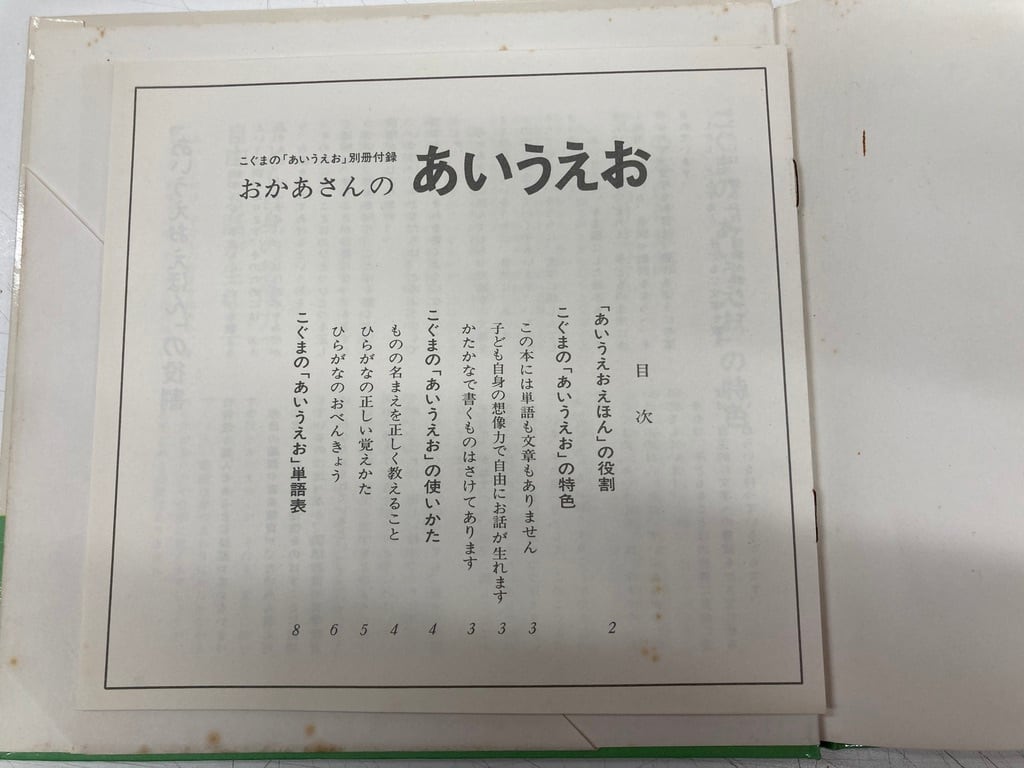 こぐまの「あいうえお」別冊付録
おかあさんの あいうえお
目次
「あいうえおえほん」の役割 2
こぐまの「あいうえお」の特色
この本には単語も文章もありません 3
子ども自身の想像力で自由にお話が生れます 3
かたかなで書くものはさけてあります 3
こぐまの「あいうえお」の使いかた 4
ものの名まえを正しく教えること 4
ひらがなの正しい覚えかた 5
ひらがなのおべんきょう 6
こぐまの「あいうえお」単語表 8